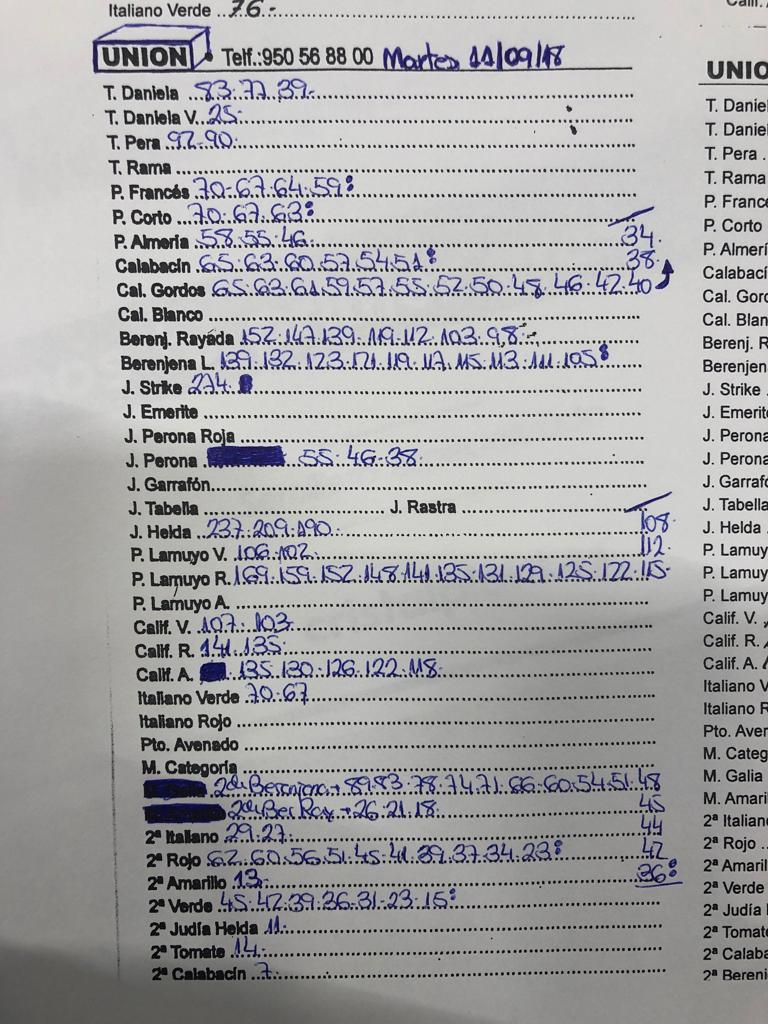 Italiano Verde 76.-
UNION Telf.:950 56 88 00 Martes 11/09/18
T. Daniela 83.77.39.
T. Daniela V. 25.
T. Pera 92.90.
T. Rama
P. Francés 70.67.64.59.
P. Corto 70.67.63.
P. Almería 58.55.46. 34.
Calabacín 65.63.60.57.54.51. 38.
Cal. Gordos 65.63.61.59.57.55.52.50.48.46.42.40
Cal. Blanco
Berenj. Rayada 152.147.139.119.112.103.98.
Berenjena L. 139.132.123.121.119.117.115.113.111.105.
J. Strike 274.
J. Emerite
J. Perona Roja
J. Perona 55.46.38.
J. Garrafón
J. Tabella J. Rastra
J. Helda 237.209.190. 108.
P. Lamuyo V. 106.102. 112
P. Lamuyo R. 169.159.152.148.141.135.131.129.125.122.115.
P. Lamuyo A.
Calif. V. 107.103.
Calif. R. 141.135.
Calif. A. 135.130.126.122.118.
Italiano Verde 70.67
Italiano Rojo
Pto. Avenado
M. Categoría
2ª Berenjena → 89.83.78.74.71.66.60.54.51.48
2ª Ber Ray → 26.21.18. 45
2ª Italiano 29.27. 44
2ª Rojo 62.60.56.51.45.41.39.37.34.23. 42
2ª Amarillo 13. 36.
2ª Verde 45.42.39.36.31.23.15.
2ª Judía Helda 11.
2ª Tomate 14.
2ª Calabacín 7.
UNIO
T. Danie
T. Danie
T. Pera
T. Rama
P. France
P. Corto
P. Almerí
Calabací
Cal. Gord
Cal. Blan
Berenj. R
Berenjen
J. Strike
J. Emerit
J. Perona
J. Perona
J. Garrafó
J. Tabella
J. Helda
P. Lamuy
P. Lamuy
P. Lamuy
Calif. V.
Calif. R.
Calif. A.
Italiano V
Italiano R
Pto. Aven
M. Categ
M. Galia
M. Amari
2ª Italian
2ª Rojo
2ª Amaril
2ª Verde
2ª Judía
2ª Tomate
2ª Calaba
2ª Bereni